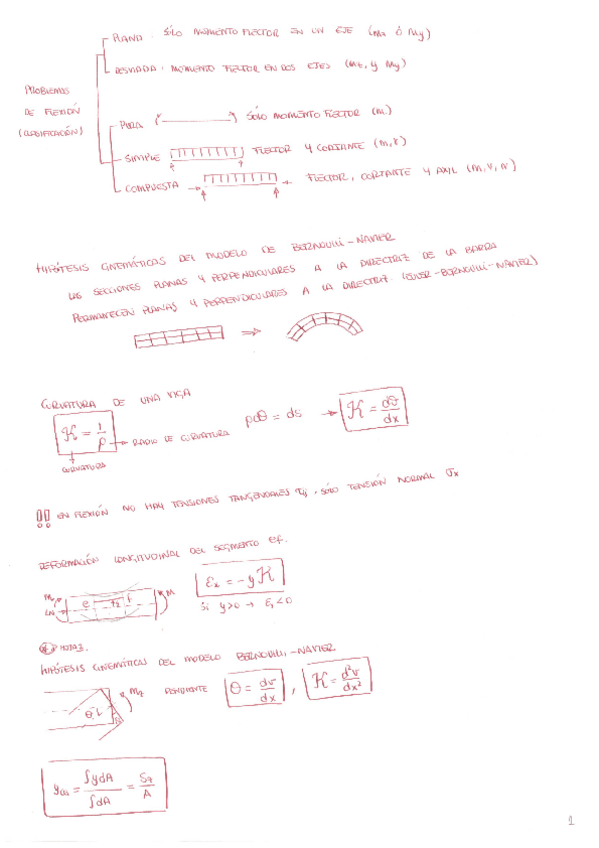 PLANA : SÓLO MOMENTO FLECTOR EN UN EJE (Mz ó My)
DESVIADA : MOMENTO FLECTOR EN DOS EJES (Mz, y My)
PROBLEMAS
DE FLEXIÓN
(CLASIFICACIÓN)
PURA SÓLO MOMENTO FLECTOR (M)
SIMPLE FLECTOR Y CORTANTE (M, V)
COMPUESTA FLECTOR, CORTANTE Y AXIL (M, V, N)
HIPÓTESIS CINEMÁTICAS DEL MODELO DE BERNOULLI-NAVIER
LAS SECCIONES PLANAS Y PERPENDICULARES A LA DIRECTRIZ DE LA BARRA
PERMANECEN PLANAS Y PERPENDICULARES A LA DIRECTRIZ. (EULER-BERNOULLI-NAVIER)
⇒
CURVATURA DE UNA VIGA
K = 1/ρ → RADIO DE CURVATURA
CURVATURA
ρdθ = ds → K = dθ/dx
!! EN FLEXIÓN NO HAY TENSIONES TANGENCIALES τij, SÓLO TENSIÓN NORMAL σx
DEFORMACIÓN LONGITUDINAL DEL SEGMENTO ef.
M e f M
LN
εx = -y K
Si y>0 → εx<0
HIPÓTESIS CINEMÁTICAS DEL MODELO BERNOULLI-NAVIER
θ Mz PENDIENTE θ = dv/dx , K = d²v/dx²
yCG = ∫ydA / ∫dA = Sz/A
1